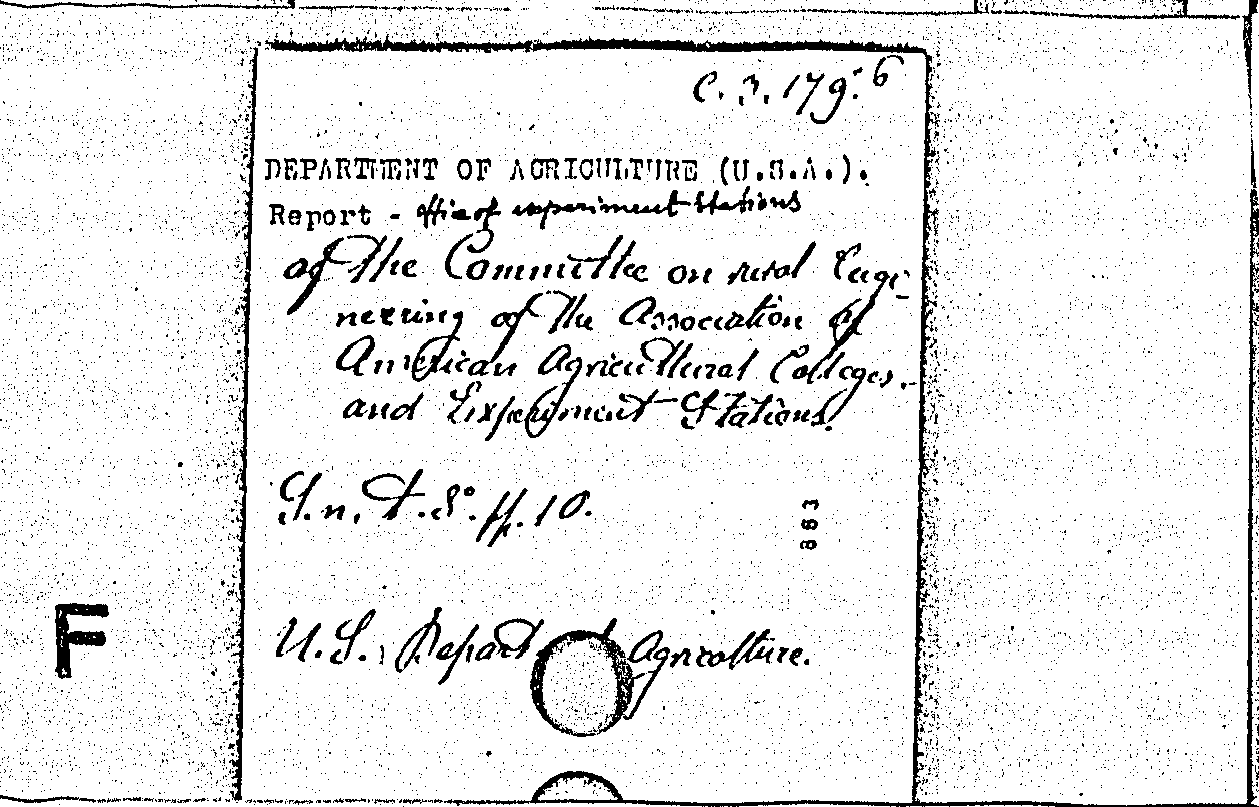 C. 3. 179:6
DEPARTMENT OF AGRICULTURE (U.S.A.).
Report - Office of experiment Stations
of the Committee on rural Engi-
neering of the Association of
American Agricultural Colleges.
and Experiment Stations.
S.n. pp. 10.
863
F
U.S. Depart Agriculture.